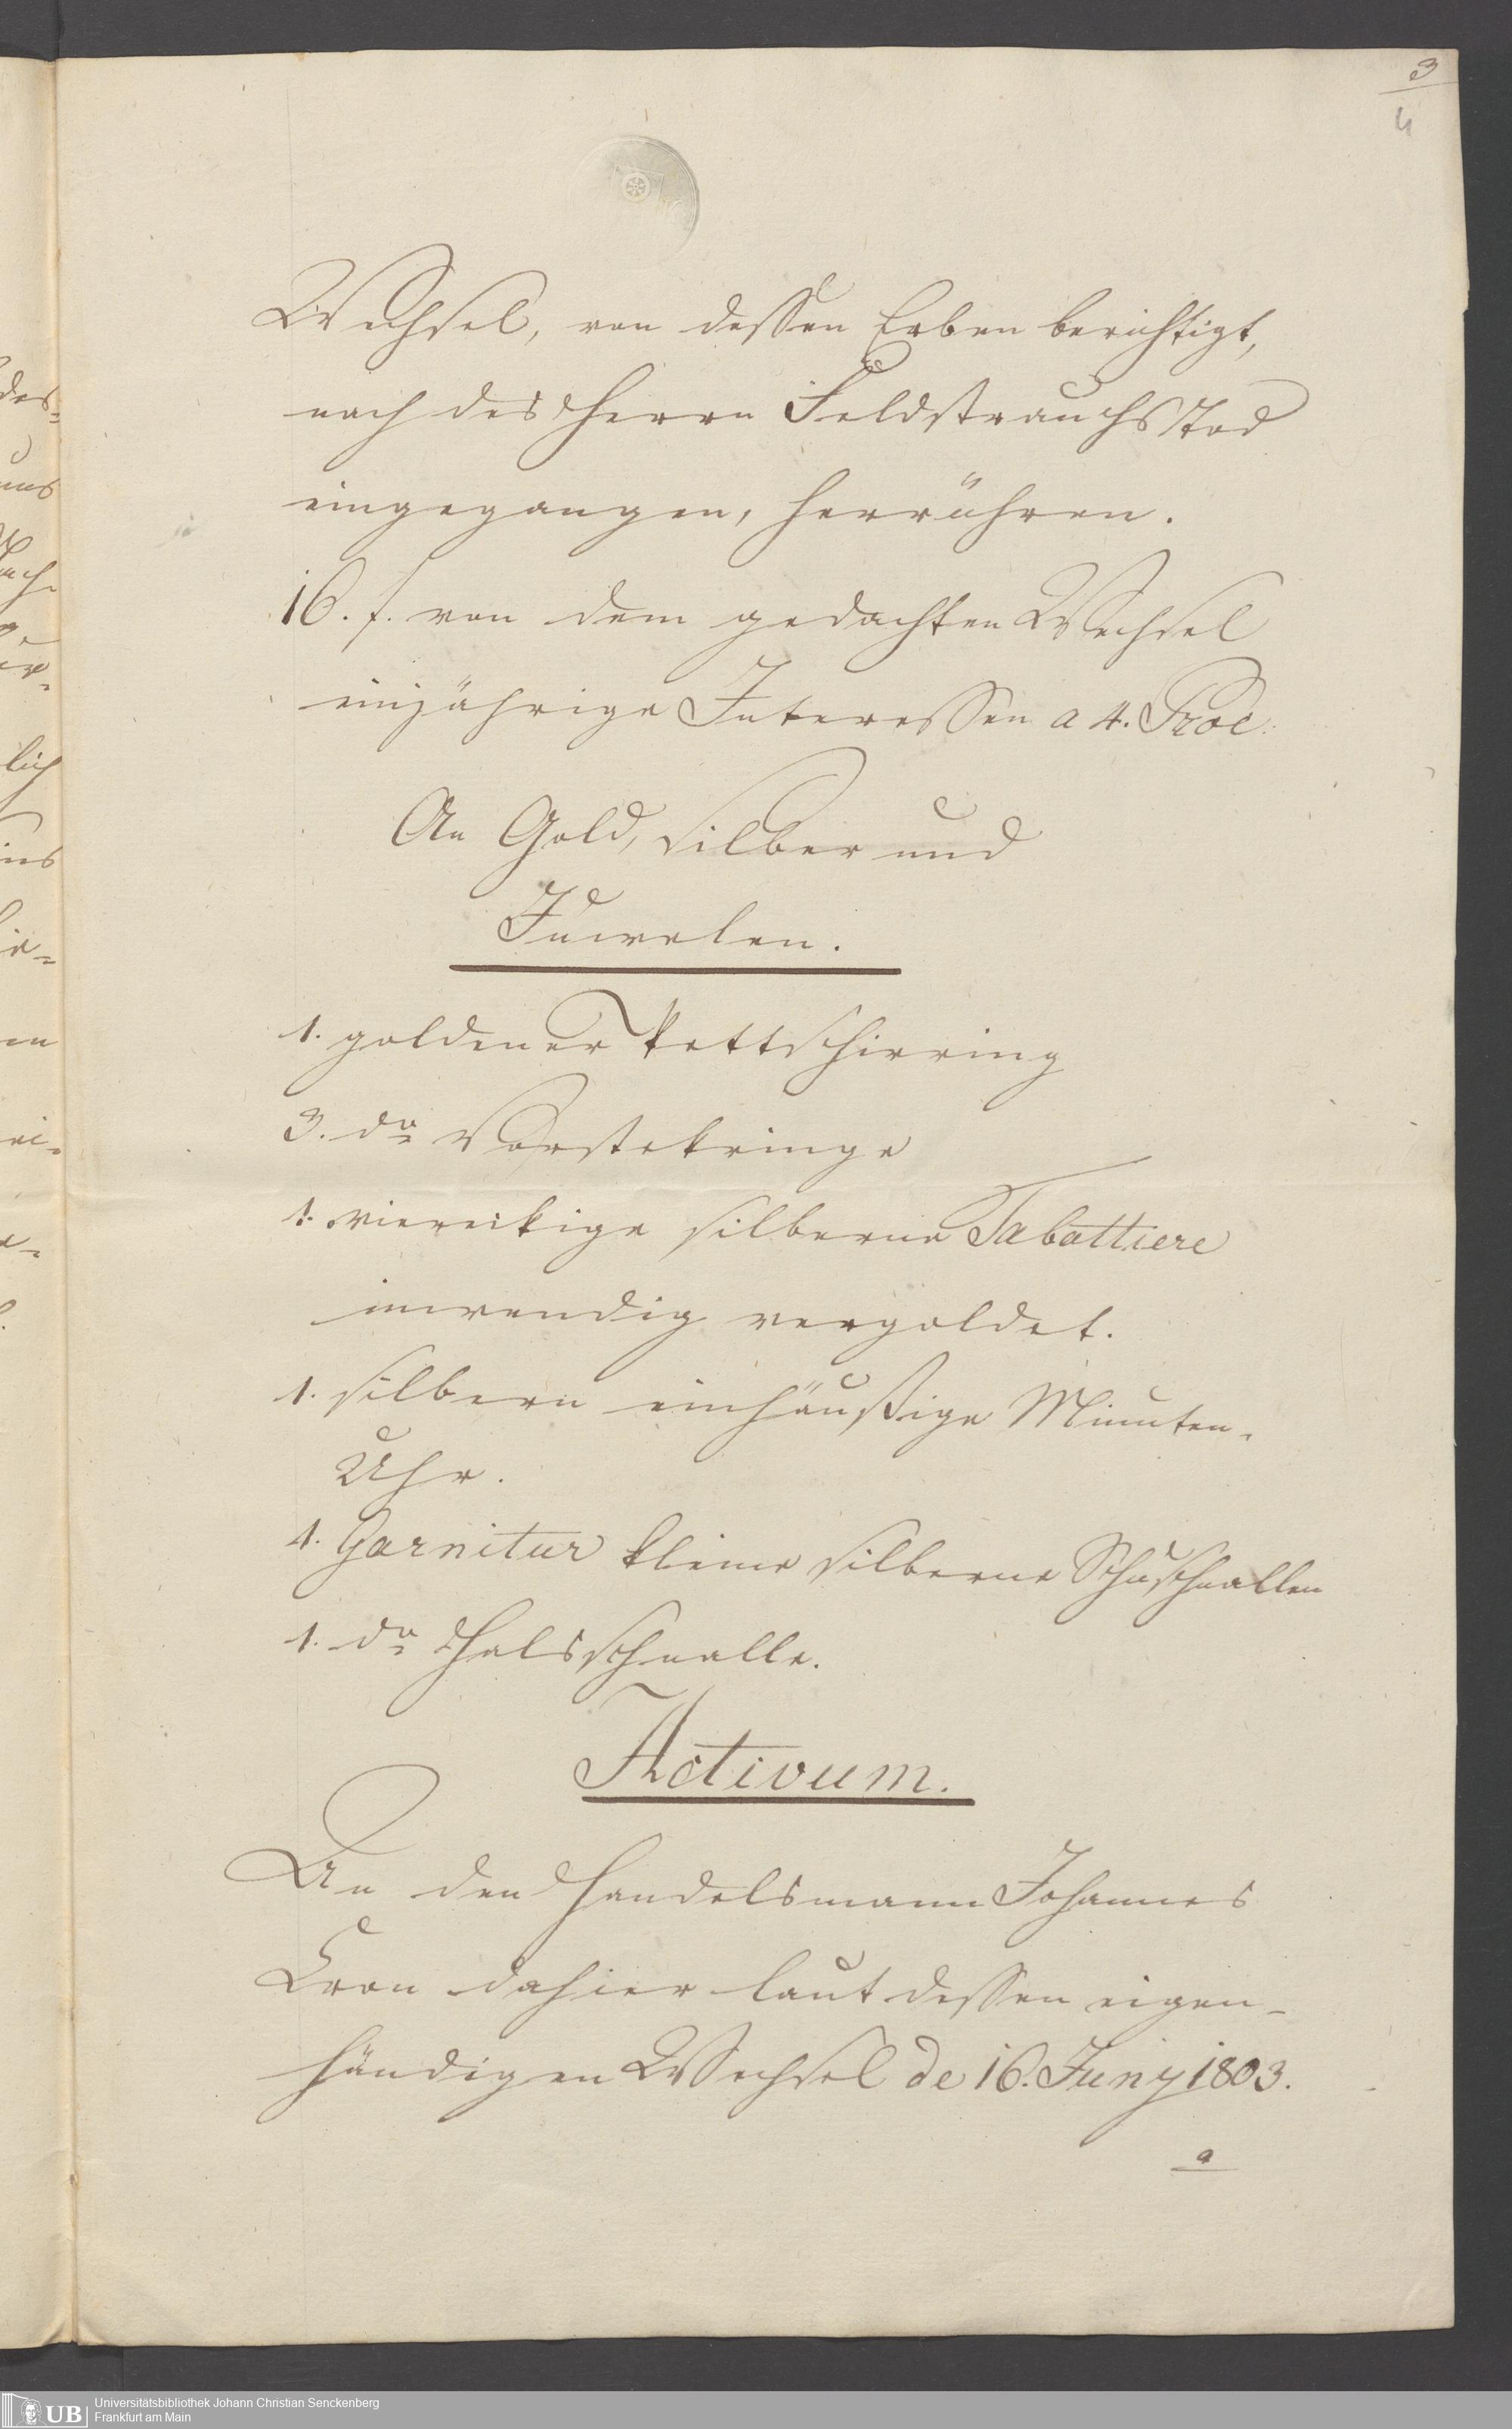 3
4
Wechsel, von dessen Erben berichtigt,
nach des Herrn Feldstrauchs Tod
eingegangen, herrühren.
16. f. von dem gedachten Wechsel
einjährige Interessen a 4. Proc:
An Gold, Silber und
Juwelen.
1. goldener Pettschirring
3. do Vorstekringe
1. viereikige silberne Tabattiere
inwendig vergoldet.
1. silbern einhäußige Minuten-
Uhr.
1. Garnitur kleine silberne Schuschnallen
1. do Halsschnalle.
Activum.
An den Handelsmann Johannes
Cron dahier laut dessen eigen-
händigen Wechsel de 16. Juny 1803.
a
UB
Universitätsbibliothek Johann Christian Senckenberg
Frankfurt am Main